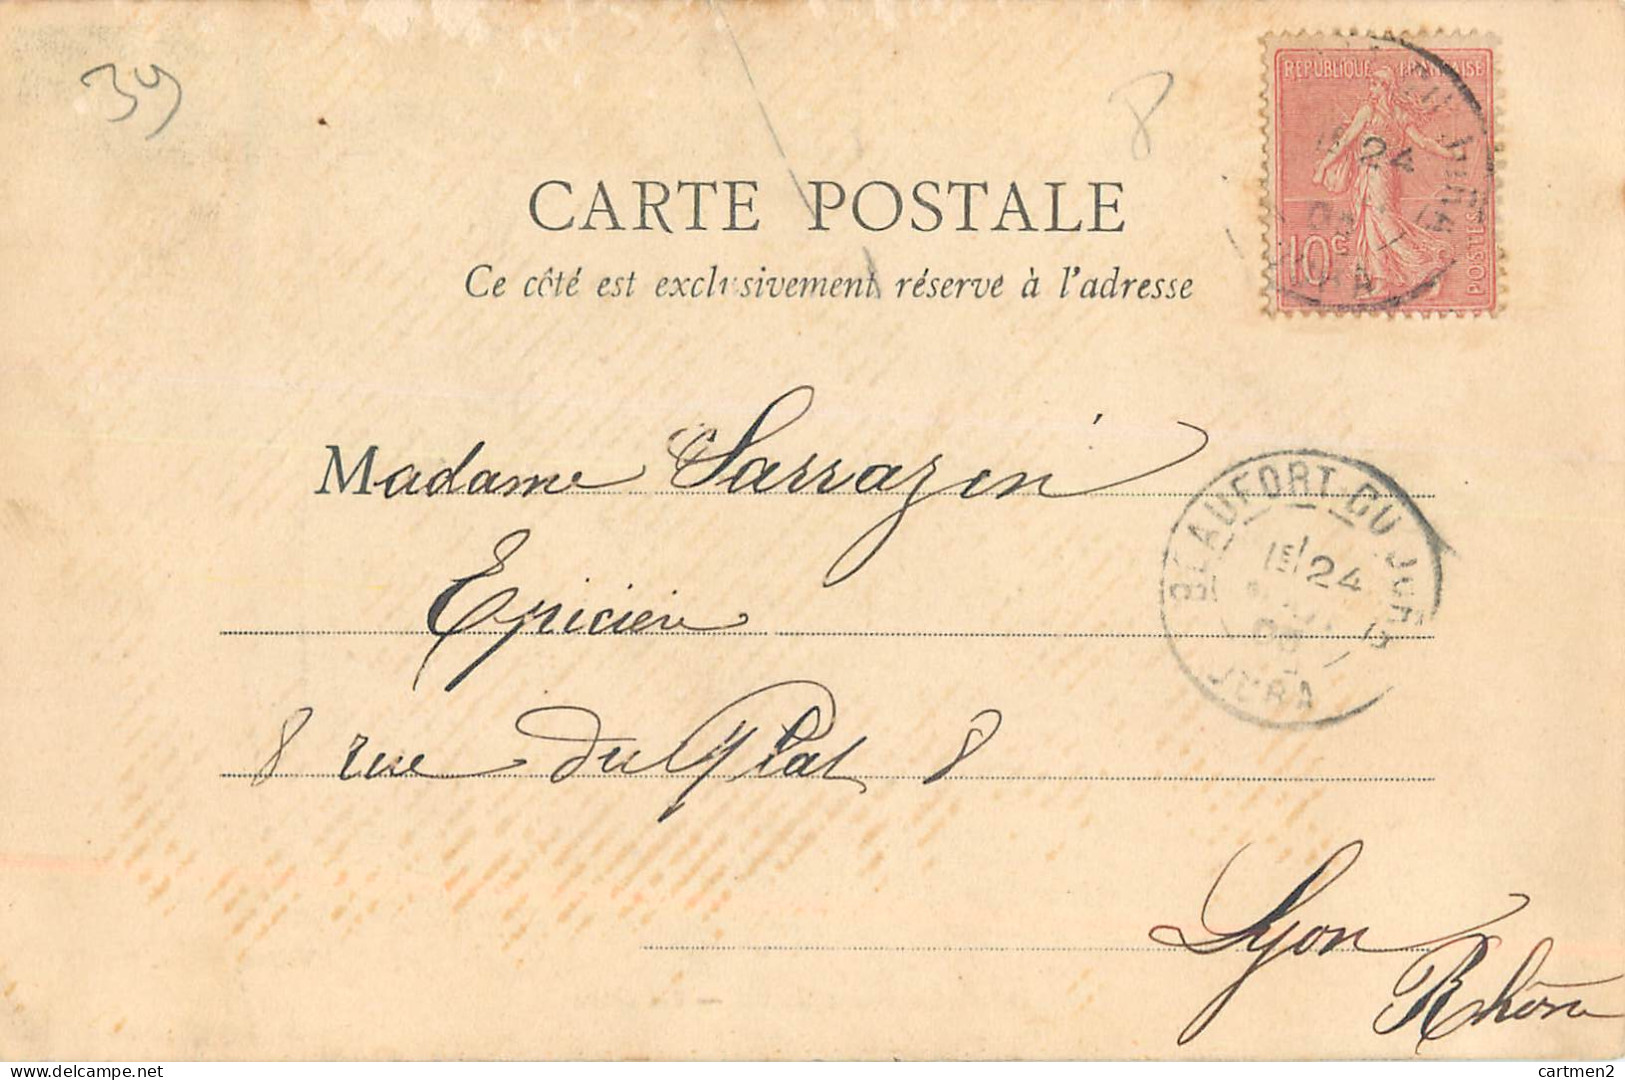 39
8
REPUBLIQUE FRANÇAISE
24
10c
POSTES
CARTE POSTALE
Ce côté est exclusivement réservé à l'adresse
Madame Sarrazin
Epicière
8 rue du Plat 8
Lyon
Rhône
BEAUFORT-DU-JURA
1E/24
JURA
delcampe.net
cartmen2